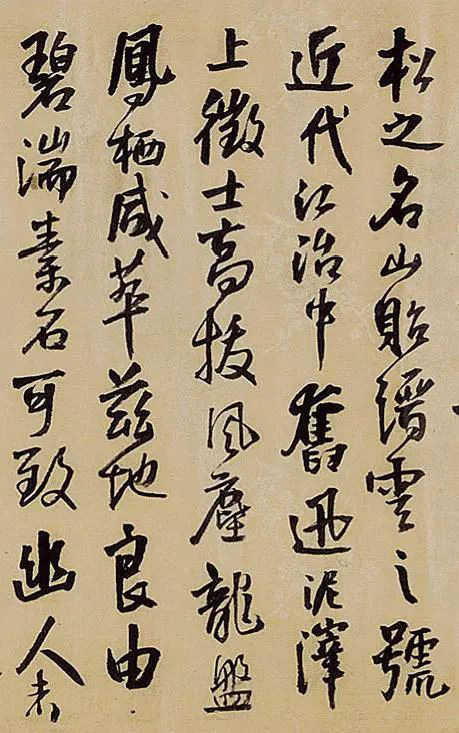 松之名山貽縉雲之號
近代江治中奮迅泥滓
上徵士高拔風塵龍盤
鳳栖咸萃茲地良由
碧湍素石可致幽人者